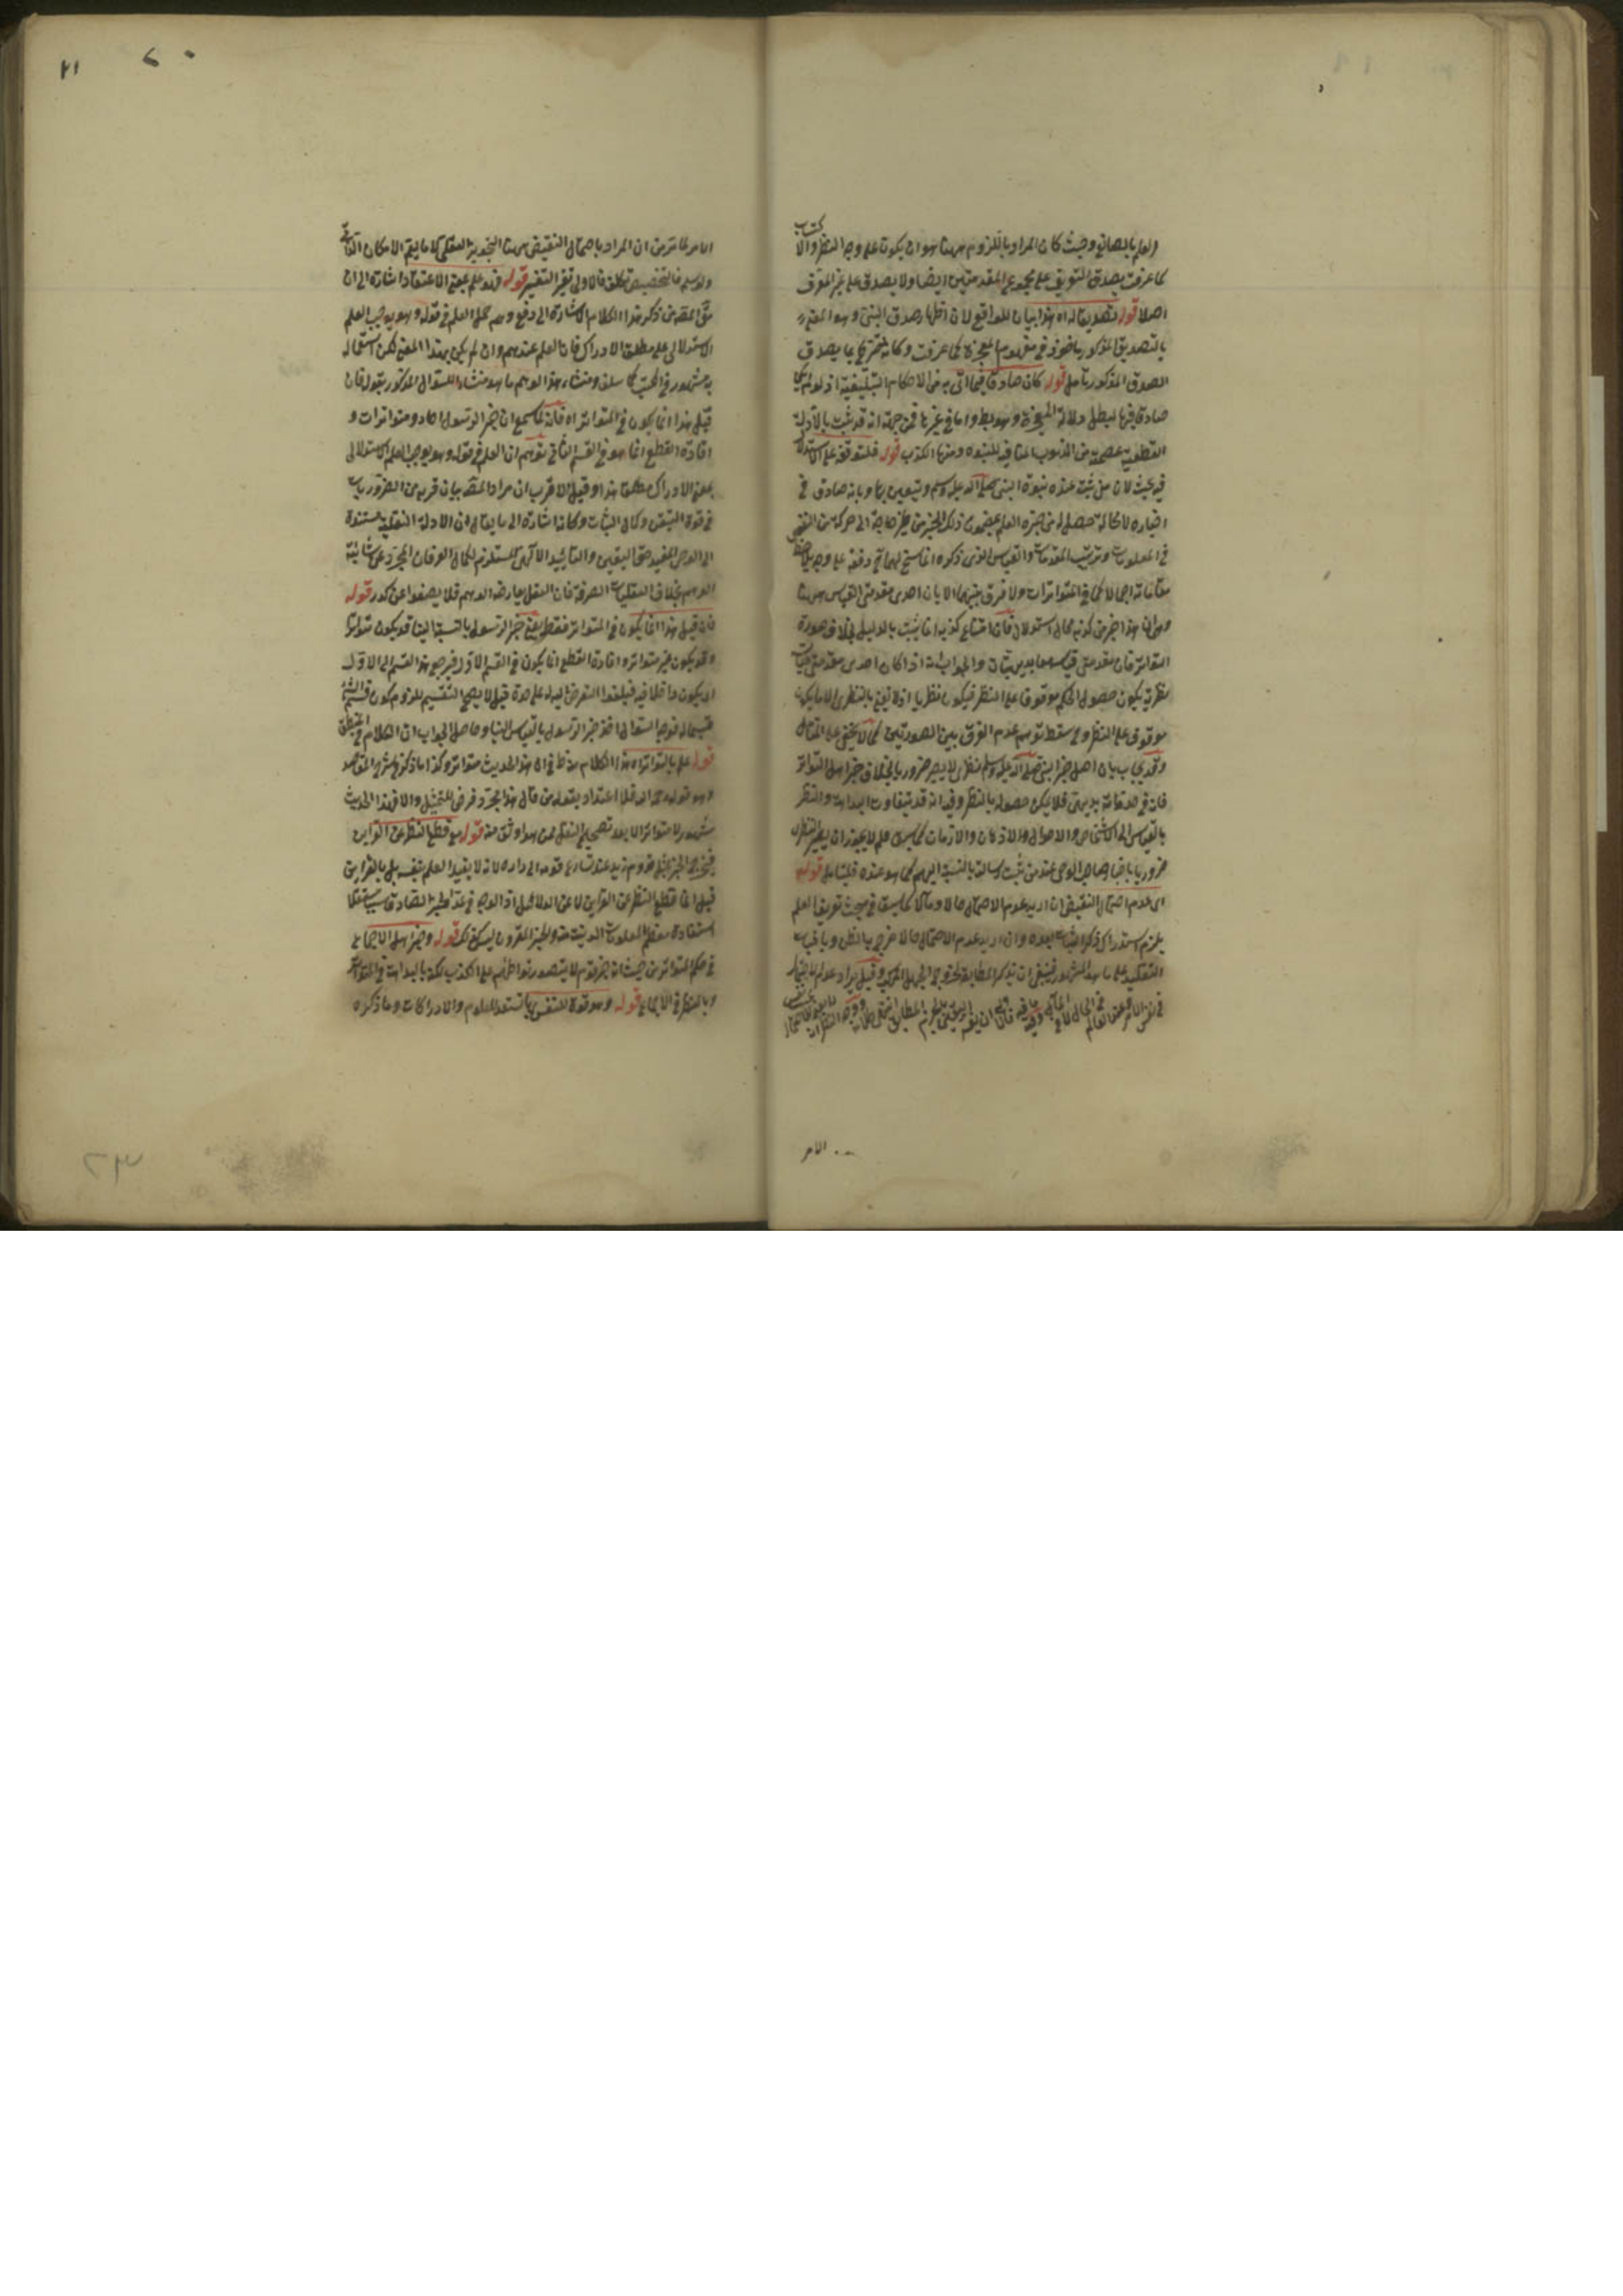 والعلم بالصانع وحيث كان المراد باللزوم ههنا هو ان يكون على وجه النظر والاكتساب
كما عرفت يصدق التعريف على مجموع المقدمتين ايضا ولا يصدق على غير المعرف
اصلا قوله تصديقا له اه هذا بيان للواقع لان اظهار صدق النبى وهو المعنى
بالتصديق المذكور ماخوذ فى مفهوم المعجزة كما عرفت وكانه يحترز به عما يصدق
الصدق المذكور تامل قوله كان صادقا فيما اتى به من الاحكام التبليغية اذ لو لم يكن
صادقا فيها لبطل دلالة المعجزة وهو بط واما فى غيرها فمن جهة انه قد ثبت بالادلة
القطعية عصمته من الذنوب المنافية للنبوة ومنها الكذب قوله فلتوقفه على الاستدلال
فيه بحث لان من ثبت عنده نبوة النبى صلى الله عليه وسلم وتيقن بها وبانه صادق فى
اخباره لا محالة حصل له من خبره العلم بمضمون ذلك الخبر من غير حاجة الى حركة من النفس
فى المعلومات وترتيب المقدمات والقياس الذى ذكروه انما سنح لها دفعة على وجه
مقارنة اجمالا كما فى المتواترات ولا فرق بينهما الا بان احدى مقدمتى القياس ههنا
وهى ان هذا خبر من كذبه محال استدلال فان امتناع كذبه انما يثبت بالدليل بخلاف صورة
التواتر فان مقدمتى قياسها بديهيتان والجواب انه اذا كان احدى مقدمتى القياس
نظرية يكون حصول الحكم موقوفا على النظر فيكون نظريا اذ لا نعنى بالنظرى الا ما يكون
موقوف على النظر وح سقط توهم عدم الفرق بين الصورتين كما لا يخفى على المتامل
وقد يجاب بان اصل خبر النبى صلى الله عليه وسلم نظرى لا يصير ضروريا بخلاف خبر اهل التواتر
فان بديهى فلا يمكن حصوله بالنظر وفيه انه قد يتفاوت البداهة والنظر
بالقياس الى الاشخاص والاحوال والاذهان والازمان كما سبق فلم لا يجوز ان يصير النظرى
ضروريا باخبار صاحب الوحى عند من ثبت رسالته بالنسبة اليهم كما هو عنده فليتامل قوله
اى عدم احتمال النقيض ان اريد عدم الاحتمال حالا ومآلا كما سبق فى مبحث تعريف العلم
يلزم استدراك ذكر الثبات بعده وان اريد عدم الاحتمال حالا خرج بالظن وبالثبات
التقليد على ما هو المشهور فينبغى ان تذكر المطابقة لخروج الجهل المركب وقيل يراد عدم الاحتمال
فى نفس الامر وعند العالم فى الحال لا فى المآل
الامر
الامر لما مر من ان المراد باحتمال النقيض ههنا التجويز العقلى لا ما يعم الامكان الذاتى
ولو سلم فالتخصيص تكلف فالاولى تغير التفسير قوله فهو علم بمعنى الاعتقاد اشارة الى ان
حق المص من ذكر هذا الكلام الاشارة الى دفع وهم حمل العلم فى قوله وهو يوجب العلم
الاستدلالى على مطلق الادراك فان العلم عندهم وان لم يكن بهذا المعنى لكن استعماله
به مشهور فى الكتب كما سلف ومنشاء هذا الوهم ما هو منشاء للسؤال المذكور بقوله فان
قيل هذا انما يكون فى المتواتر اه فانه لما سمع ان خبر الرسول آحاد ومتواترات و
افادة القطع انما هو فى القسم الثانى توهم ان العلم فى قوله وهو يوجب العلم الاستدلالى
بمعنى الادراك مطلقا هذا وقيل الاقرب ان مراد المص بيان قربه من الضروريات
فى قوة التيقن وكمال الثبات وكانه اشارة الى ما يقال ان الادلة النقلية مستندة
الى الوحى المفيد حق اليقين والتائيد الالهى المستلزم لكمال العرفان المجرد عن شائبة
الوهم بخلاف العقليات الصرفة فان العقل يعارضه الوهم فلا يصفو عن كدر قوله
فان قيل هذا انما يكون فى المتواتر فقط يعنى خبر الرسول بالنسبة الينا قد يكون متواترا
وقد يكون غير متواتر وافادة القطع انما يكون فى القسم الاول فيرجع هذا القسم الى الاول
اى يكون داخلا فيه فيلغو التعرض اليه على حدة قيل لا يصح التقسيم للزوم كون قسم الشئ
قسيما له فوجه السؤال اخذ خبر الرسول بالقياس الينا وحاصل الجواب ان الكلام فى المطلق
قوله علم بالتواتر اه هذا الكلام يدل على ان هذا الحديث متواتر وكذا ما ذكره فى شرح المقاصد
وهو قوله فلا اعتداد بقول من قال هذا مجرد فرض للتمثيل والا فهذا الحديث
مشهور لا متواتر الا بعد تصحيح النقل ممن هو اوثق منه قوله مع قطع النظر عن القراين
فيخرج الخبر بقدوم زيد عند تسارع قومه الى داره لانه لا يفيد العلم بنفسه بل بالقراين
قيل انما قطع النظر عن القراين لا عن الدلائل اذ الوجه فى عد الخبر الصادق سببا مستقلا
استفادة معظم المعلومات الدينية منه والخبر المقرون ليس كذلك قوله وخبر اهل الاجماع
فى حكم المتواتر من حيث انه خبر قوم لا يتصور تواطئهم على الكذب لكنه بالبداهة فى المتواتر
وبالنظر فى الاجماع قوله وهو قوة للنفس بها تستعد للعلوم والادراكات وما ذكره